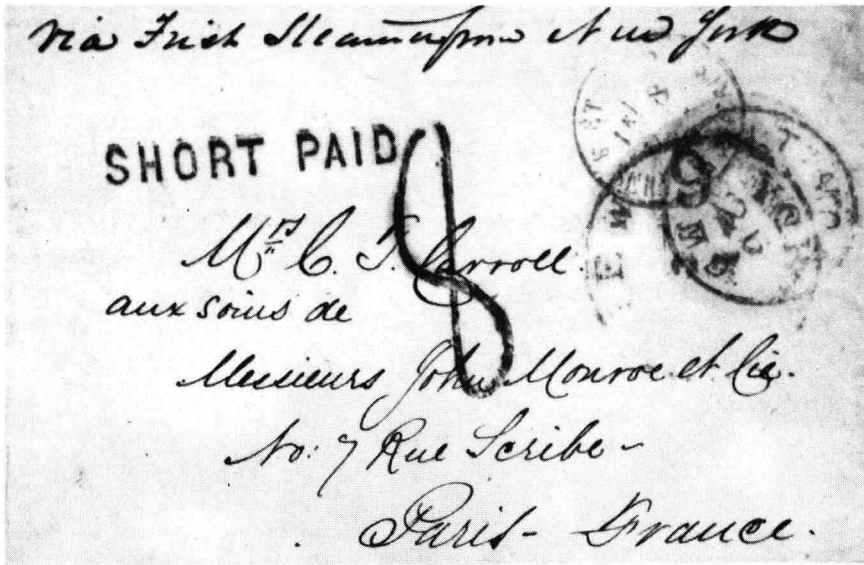 via First Steamer from New York
SHORT PAID
8
Mrs C. T. Carroll.
aux soins de
Messieurs John Monroe et Cie.
No: 7 Rue Scribe -
Paris - France.